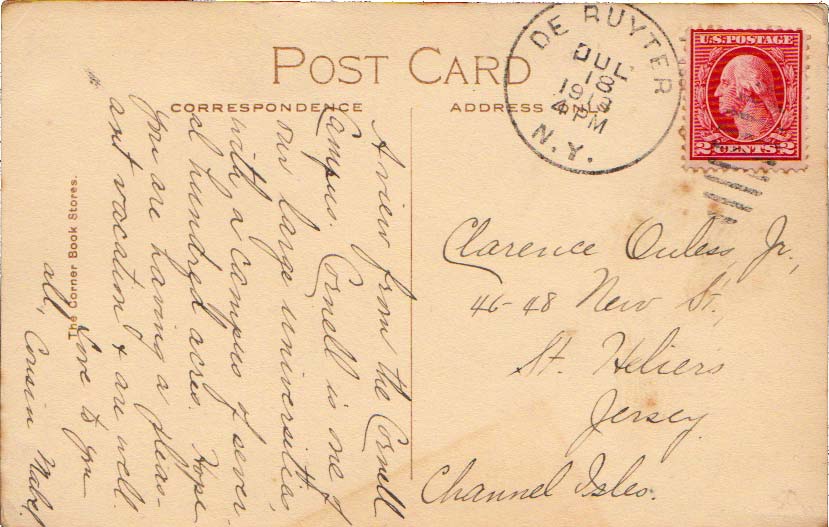 POST CARD
CORRESPONDENCE
ADDRESS ONLY
DE RUYTER
JUL
18
4 PM
N.Y.
U.S. POSTAGE
2 CENTS 2
A view from the Cornell
Campus. Cornell is one of
our large universities,
with a campus of sever-
al hundred acres. Hope
you are having a pleas-
ant vacation & are well.
Love to you
all, Cousin Mabel
The Corner Book Stores.
Clarence Ouless, Jr.,
46-48 New St.,
St. Heliers
Jersey
Channel Isles.